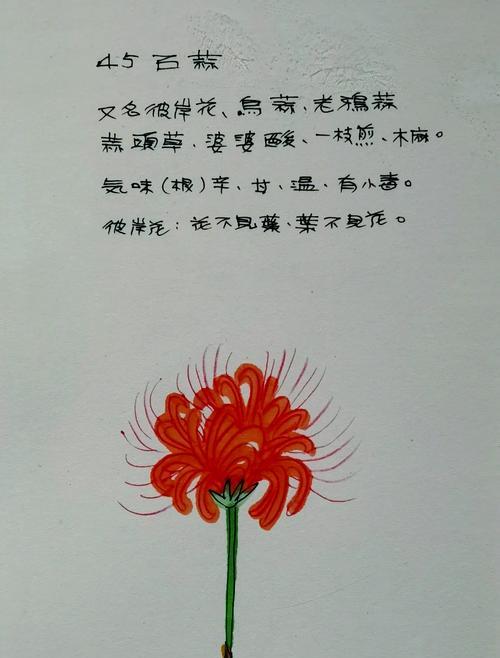 45 石蒜
又名彼岸花、烏蒜、老鴉蒜
蒜頭草、婆婆酸、一枝煎、木麻。
気味(根)辛、甘、温、有小毒。
彼岸花:花不見葉、葉不見花。